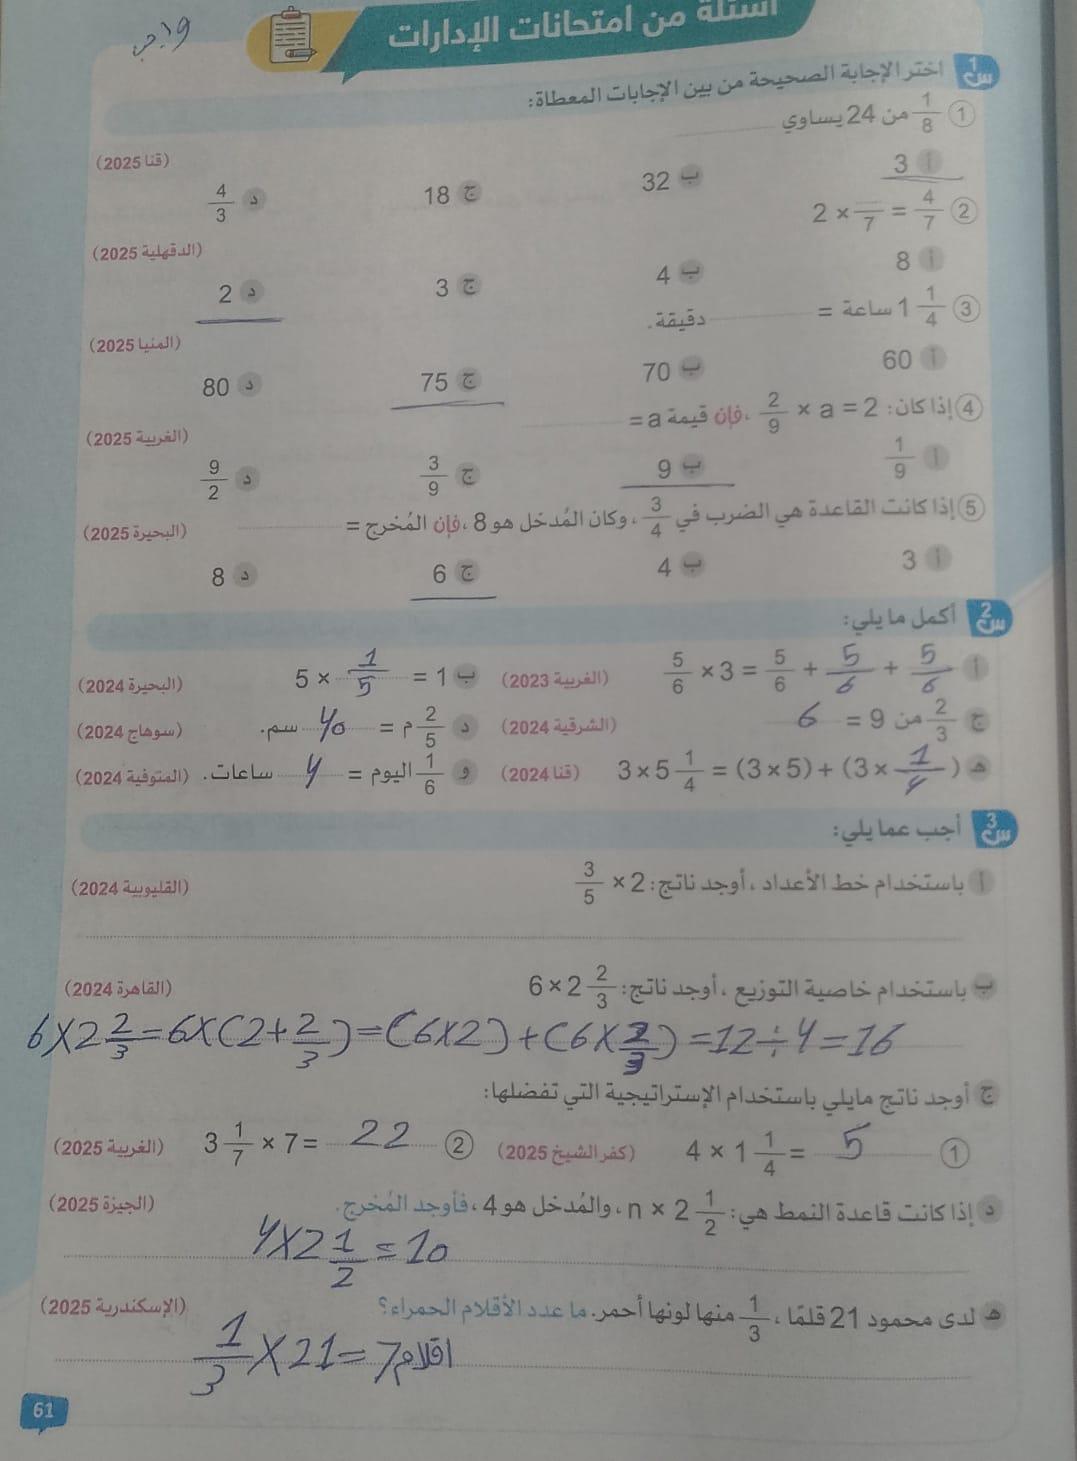 واجب
أسئلة من امتحانات الإدارات
س1 اختر الإجابة الصحيحة من بين الإجابات المعطاة:
① 1/8 من 24 يساوي
(قنا 2025)
أ 3 ب 32 ج 18 د 4/3
② 2 × ـــ/7 = 4/7
(الدقهلية 2025)
أ 8 ب 4 ج 3 د 2
③ 1 1/4 ساعة = دقيقة.
(المنيا 2025)
أ 60 ب 70 ج 75 د 80
④ إذا كان: 2/9 × a = 2، فإن قيمة a =
(الغربية 2025)
أ 1/9 ب 9 ج 3/9 د 9/2
⑤ إذا كانت القاعدة هي الضرب في 3/4، وكان المُدخل هو 8، فإن المُخرج =
(البحيرة 2025)
أ 3 ب 4 ج 6 د 8
س2 أكمل ما يلي:
أ 5/6 × 3 = 5/6 + 5/6 + 5/6 (الغربية 2023) ب 5 × 1/5 = 1 (البحيرة 2024)
ج 2/3 من 9 = 6 (الشرقية 2024) د 2/5 م = 40 سم. (سوهاج 2024)
هـ 3 × 5 1/4 = (3 × 5) + (3 × 1/4) (قنا 2024) و 1/6 اليوم = 4 ساعات. (المنوفية 2024)
س3 أجب عما يلي:
أ باستخدام خط الأعداد، أوجد ناتج: 3/5 × 2 (القليوبية 2024)
ب باستخدام خاصية التوزيع، أوجد ناتج: 6 × 2 2/3 (القاهرة 2024)
6×2 2/3 = 6×(2+2/3) = (6×2)+(6×2/3) = 12÷4 = 16
ج أوجد ناتج مايلي باستخدام الإستراتيجية التي تفضلها:
① 4 × 1 1/4 = 5 (كفر الشيخ 2025) ② 3 1/7 × 7 = 22 (الغربية 2025)
د إذا كانت قاعدة النمط هي: n × 2 1/2، والمُدخل هو 4، فأوجد المُخرج. (الجيزة 2025)
4×2 1/2 = 10
هـ لدى محمود 21 قلمًا، 1/3 منها لونها أحمر. ما عدد الأقلام الحمراء؟ (الإسكندرية 2025)
1/3 × 21 = 7 اقلام
61